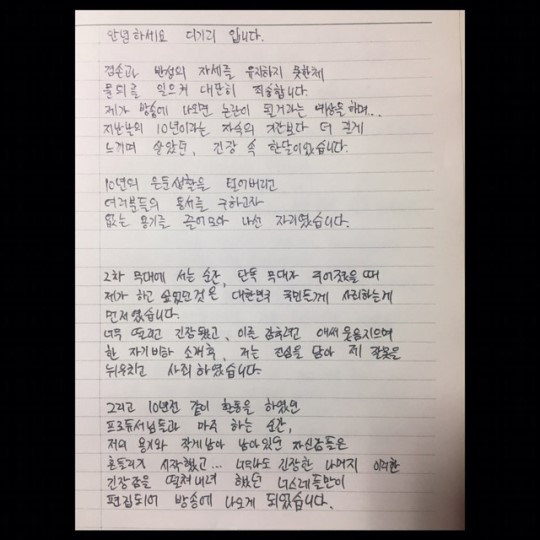 안녕하세요 디기리 입니다.
겸손과 반성의 자세를 유지하지 못한채
물의를 일으켜 대단히 죄송합니다.
제가 방송에 나오면 논란이 될거라는 예상을 하며...
지난날의 10년이라는 자숙의 기간보다 더 길게
느끼며 살았던, 긴장 속 한달이었습니다.
10년의 은둔생활을 털어버리고
여러분들의 용서를 구하고자
없는 용기를 끌어모아 나선 자리였습니다.
2차 무대에 서는 순간, 단독 무대가 주어졌을때
제가 하고 싶었던것은 대한민국 국민들께 사죄하는게
먼저였습니다.
너무 떨리고 긴장됐고, 이를 감추려고 애써 웃음지으며
한 자기비하 소개 후, 저는 진심을 담아 제 잘못을
뉘우치고 사죄하였습니다.
그리고 10년전 같이 활동을 하였던
프로듀서님들과 마주 하는 순간,
저의 용기와 작게남아 남아있던 자신감들은
흔들리기 시작했고... 너무나도 긴장한 나머지 이러한
긴장감을 떨쳐내려 했던 너스레들만이
편집되어 방송에 나오게 되었습니다.